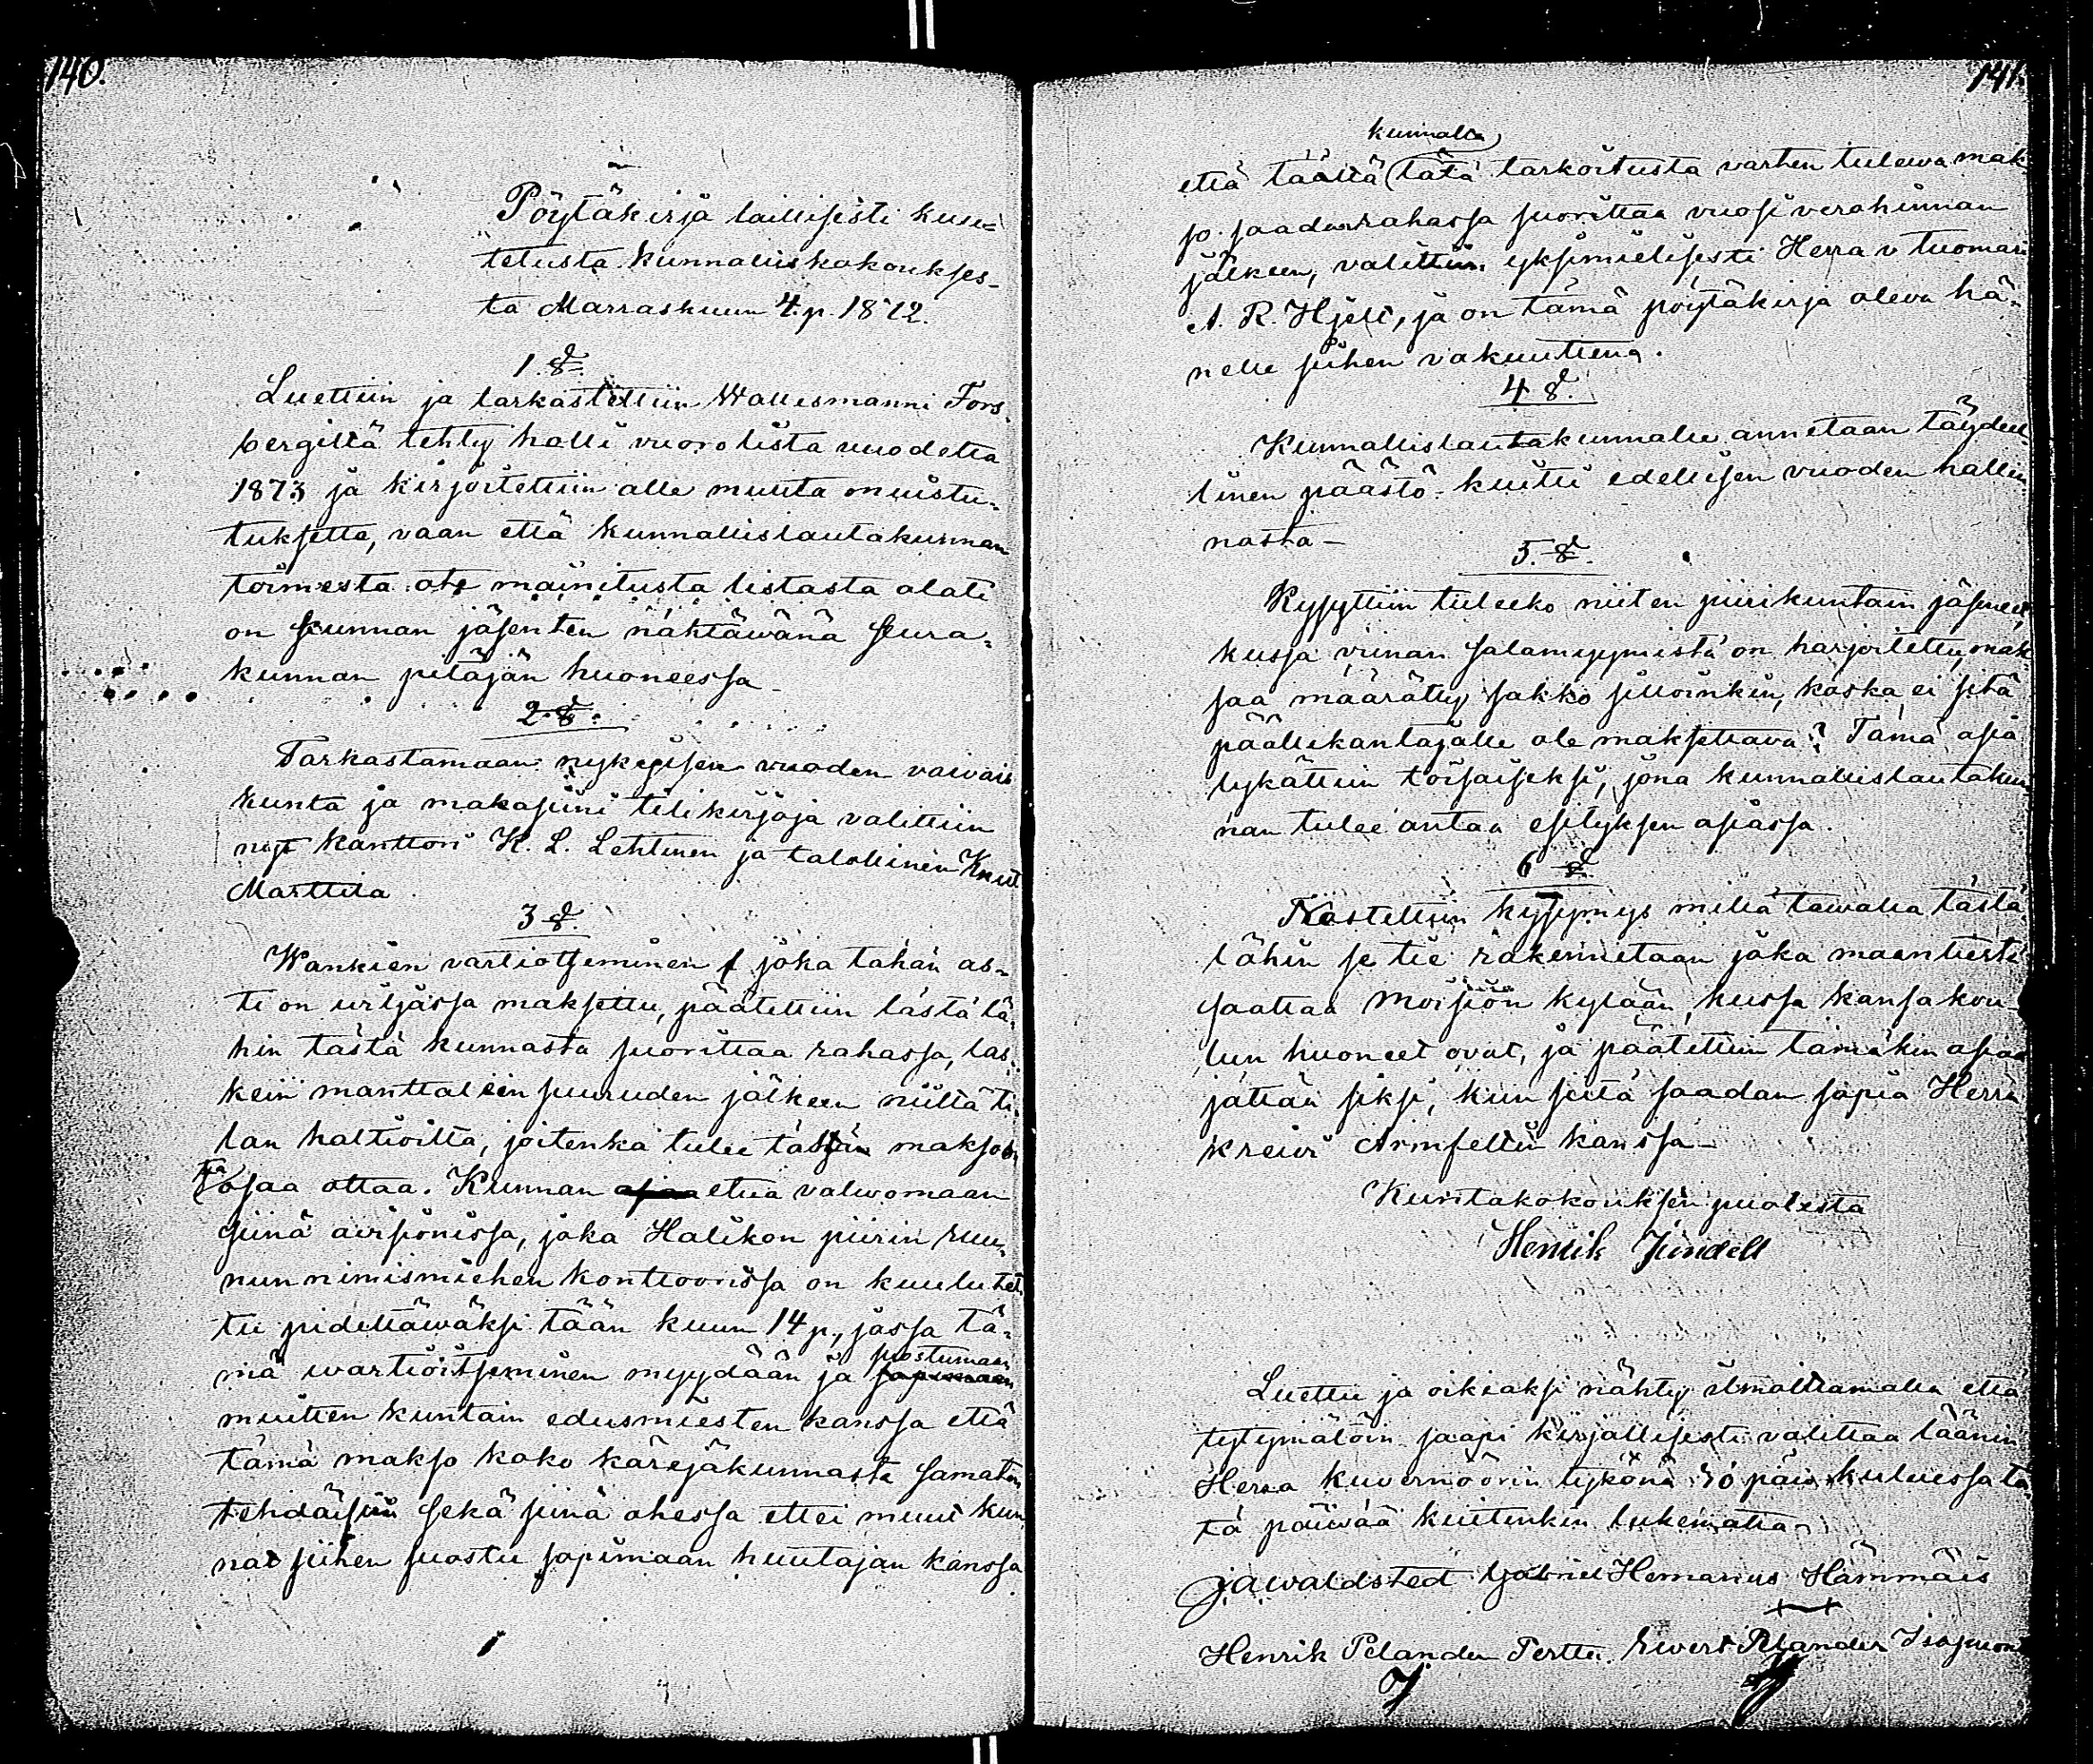 140.
Pöytäkirja laillisesti kuulu=
tetusta kunnalliskokoukses-
ta Marraskuun 4. p. 1872.
1. §.
Luettiin ja tarkastettiin Wallesmanni Fors-
bergiltä tehty halli vuorolista vuodelta
1873 ja kirjoitettiin alle muuta muistu-
tuksetta, vaan että kunnallislautakunnan
toimesta ote mainitusta listasta alati
on kunnan jäsenten nähtäwänä seura-
kunnan pitäjän huoneessa -
2. §.
Tarkastamaan nykyisen vuoden vaivais
kunta ja makasiini tilikirjoja valittiin
nyt kanttori K. L. Lehtinen ja talollinen Knut
Marttila
3 §.
Wankien vartiotseminen joka tähän as-
ti on urijassa maksettu, päätettiin tästä lä-
hin tästä kunnasta suorittaa rahassa, las-
kein manttalein suuruden jälkeen niiltä ti-
lan haltioilta, joitenka tulee tähän maksoon
osaa ottaa. Kunnan etua valwomaan
siinä auksionissa, joka Halikon piirin ruu-
nun nimismiehen konttoorissa on kuulutet-
tu pidettäwäksi tään kuun 14 p., jossa tä-
mä wartioitseminen myydään ja suostumaan
muitten kuntain edusmiesten kanssa että
tämä makso koko käräjäkunnasta samaten
tehdäisiin sekä siinä ohessa ettei muut kun-
nat siihen suostu sopimaan huutajan kanssa
141.
kunnalta
että täältä tätä tarkoitusta varten tulewa mak
so saadan rahassa suorittaa vuosi verohinnan
jälkeen, valittiin yksimielisesti Herra v tuomari
A. R. Hjelt, ja on tämä pöytäkirja oleva hä-
nelle siihen vakuuttena.
4 §.
Kunnallislautakunnalle annetaan täydel-
linen päästö-kuitti edellisen vuoden hallin-
nosta -
5. §.
Kysyttiin tuleeko niiten piirikuntain jäsenet,
kussa viinan salamyymistä on harjoitettu, mak-
saa määrätty sakko silloinkin, koska ei sitä
päällekantajalle ole maksettava? Tämä asia
lykättiin toisaiseksi, jona kunnallislautakun
nan tulee antaa esityksen asiassa.
6 §
Nostettiin kysymys millä tawalla tästä
lähin se tie rakennetaan joka maantiestä
saattaa Moision kylään, kussa kansakou-
lun huoneet ovat, ja päätettiin tämäkin asia
jättää siksi, kun siitä saadan sopia Herra
kreivi Armfeltin kanssa -
Kuntakokouksen puolesta
Henrik Jündell
Luettu ja oikiaksi nähty ilmoittamalla että
tytymätöin saapi kirjallisesti valittaa läänin
Herra kuvernöörin tykönä 30 päiv. kuluessa tä-
tä päiwää kuitenkin lukematta
J A Waldsted Gabriel Hemanus Hämmäis
Henrik Pelander Perttu. Ewert Pelander Isosuon